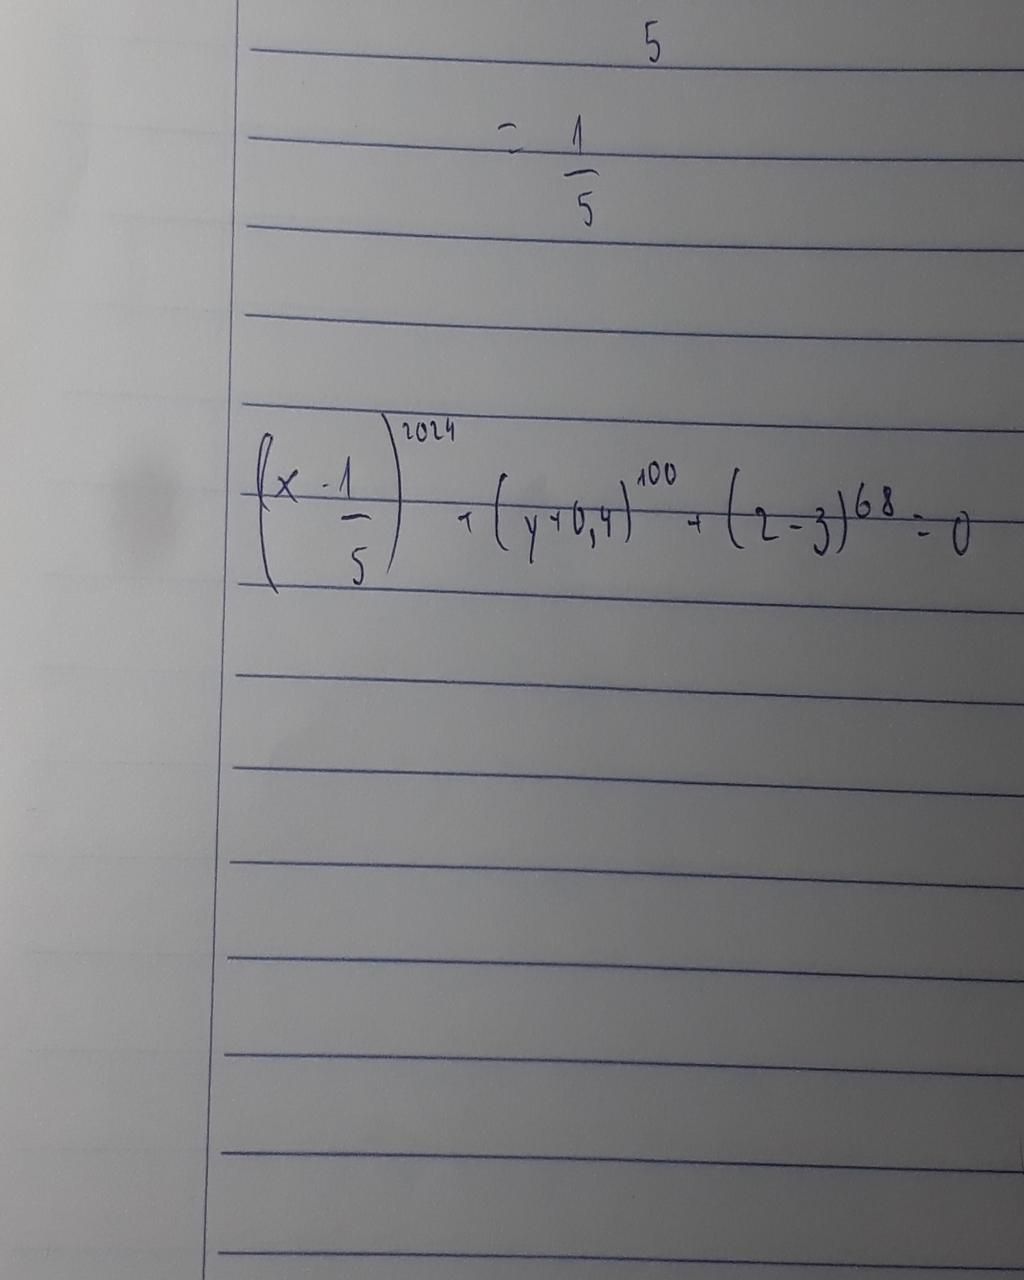 5
= 1/5
(x - 1/5)^2024 + (y+0,4)^100 + (z-3)^68 = 0